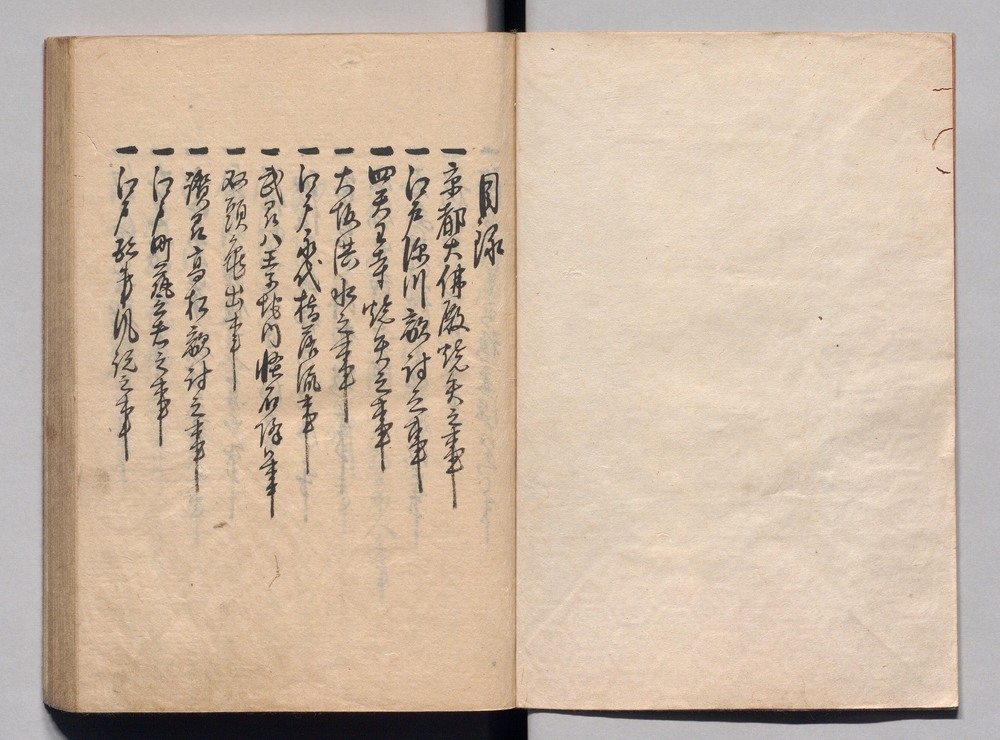 目録
一 京都大佛殿焼失之事
一 江戸深川敵討之事
一 四天王寺焼失之事
一 大坂洪水之事
一 江戸永代橋落流事
一 武州八王子地内怪石降事
一 双頭亀出事
一 讃州高松敵討之事
一 江戸町荒之者之事
一 江戸風説之事